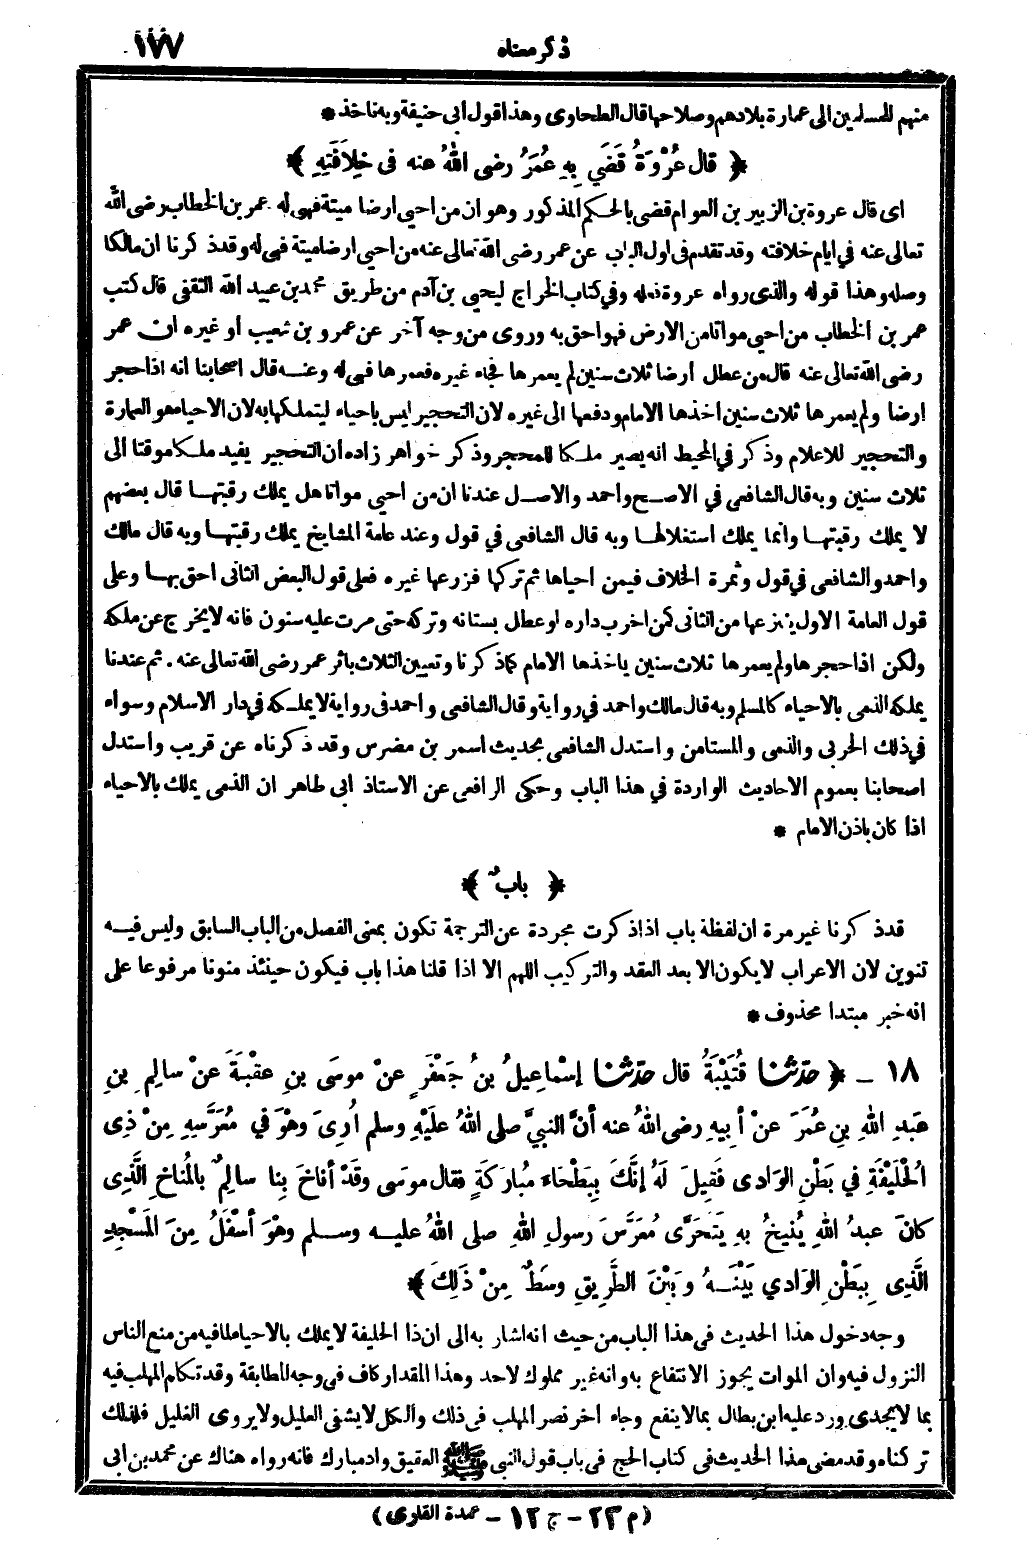 ذكر معناه ١٧٧
منهم للمسلمين الى عمارة بلادهم وصلاحها قال الطحاوى وهذا قول أبى حنيفة وبه ناخذ *
﴿ قال عُرْوَةُ قَضَي بِهِ عُمَرُ رضى اللهُ عنه فى خِلاَفَتِهِ ﴾
اى قال عروة بن الزبير بن العوام قضى بالحكم المذكور وهو ان من احيى ارضا ميتة فهى له عمر بن الخطاب رضى الله
تعالى عنه في ايام خلافته وقد تقدم فى اول الباب عن عمر رضى الله تعالى عنه من احيى ارضا ميتة فهى له وقد ذكرنا ان مالكا
وصله وهذا قوله والذى رواه عروة فعله وفي كتاب الخراج ليحي بن آدم من طريق محمد بن عبيد الله الثقفى قال كتب
عمر بن الخطاب من احيى مواتا من الارض فهو احق به وروى من وجه آخر عن عمرو بن شعيب او غيره ان عمر
رضى الله تعالى عنه قال من عطل ارضا ثلاث سنين لم يعمرها فجاء غيره فعمرها فهى له وعنه قال اصحابنا انه اذا حجر
ارضا ولم يعمرها ثلاث سنين اخذها الامام ودفعها الى غيره لان التحجير ليس باحياء ليتملكها به لان الاحياء هو العمارة
والتحجير للاعلام وذكر في المحيط انه يصير ملكا للمحجر وذكر خواهر زاده أن التحجير يفيد ملكا موقتا الى
ثلاث سنين وبه قال الشافعى في الاصح واحمد والاصل عندنا ان من احيى مواتا هل يملك رقبتها قال بعضهم
لا يملك رقبتها وانما يملك استغلالها وبه قال الشافعى في قول وعند عامة المشايخ يملك رقبتها وبه قال مالك
واحمد والشافعى في قول وثمرة الخلاف فيمن احياها ثم تركها فزرعها غيره فعلى قول البعض الثانى احق بها وعلى
قول العامة الاول ينزعها من الثانى كمن اخرب داره او عطل بستانه وتركه حتى مرت عليه سنون فانه لا يخرج عن ملكه
ولكن اذا حجرها ولم يعمرها ثلاث سنين ياخذها الامام كما ذكرنا وتعيين الثلاث باثر عمر رضى الله تعالى عنه . ثم عندنا
يملكه الذمى بالاحياء كالمسلم وبه قال مالك واحمد في رواية وقال الشافعى واحمد فى رواية لا يملكه في دار الاسلام وسواء
في ذلك الحربى والذمى والمستامن واستدل الشافعى بحديث اسمر بن مضرس وقد ذكرناه عن قريب واستدل
اصحابنا بعموم الاحاديث الواردة في هذا الباب وحكى الرافعى عن الاستاذ ابى طاهر ان الذمى يملك بالاحياء
اذا كان باذن الامام *
﴿ بابٌ ﴾
قد ذكرنا غير مرة ان لفظة باب اذا ذكرت مجردة عن الترجمة تكون بمعنى الفصل من الباب السابق وليس فيه
تنوين لان الاعراب لا يكون الا بعد العقد والتركيب اللهم الا اذا قلنا هذا باب فيكون حينئذ منونا مرفوعا على
انه خبر مبتدا محذوف *
١٨ ـ ﴿ حدّثنا قُتَيْبَةُ قال حدّثنا إسْماعِيلُ بنُ جَعْفَرٍ عنْ موسَى بنِ عقْبَةَ عنْ سالِمِ بنِ
عَبدِ اللهِ بنِ عُمَرَ عنْ أبِيهِ رضى اللهُ عنه أنَّ النبيَّ صلى اللهُ علَيْهِ وسلم أُرِىَ وهْوَ في مُعَرَّسِهِ مِنْ ذِى
الْحُلَيْفَةِ في بَطْنِ الوَادى فَقِيلَ لَهُ إنَّكَ بِبَطْحَاءَ مُبارَكَةٍ فقال موسَى وقَدْ أناخَ بِنا سالِمٌ بالمُناخِ الَّذِى
كانَ عبدُ اللهِ يُنِيخُ بهِ يَتَحَرَّى مُعَرَّسَ رسولِ اللهِ صلى اللهُ عليه وسلم وهْوَ أسْفَلُ مِنَ المَسْجِدِ
الَّذِى بِبَطْنِ الوَادي بَيْنَهُ وَبَيْنَ الطَّرِيقِ وسَطٌ مِنْ ذَلِكَ ﴾
وجه دخول هذا الحديث فى هذا الباب من حيث انه اشار به الى ان ذا الحليفة لا يملك بالاحياء لما فيه من منع الناس
النزول فيه وان الموات يجوز الانتفاع به وانه غير مملوك لاحد وهذا المقدار كاف فى وجه المطابقة وقد تكلم المهلب فيه
بما لا يجدى ورد عليه ابن بطال بما لا ينفع وجاء اخر نصر المهلب فى ذلك والكل لا يشفى العليل ولا يروى الغليل فلذلك
تركناه وقد مضى هذا الحديث فى كتاب الحج فى باب قول النبى ﷺ العقيق واد مبارك فانه رواه هناك عن محمد بن ابى
(م ٢٣ - ج ١٢ - عمدة القارى)